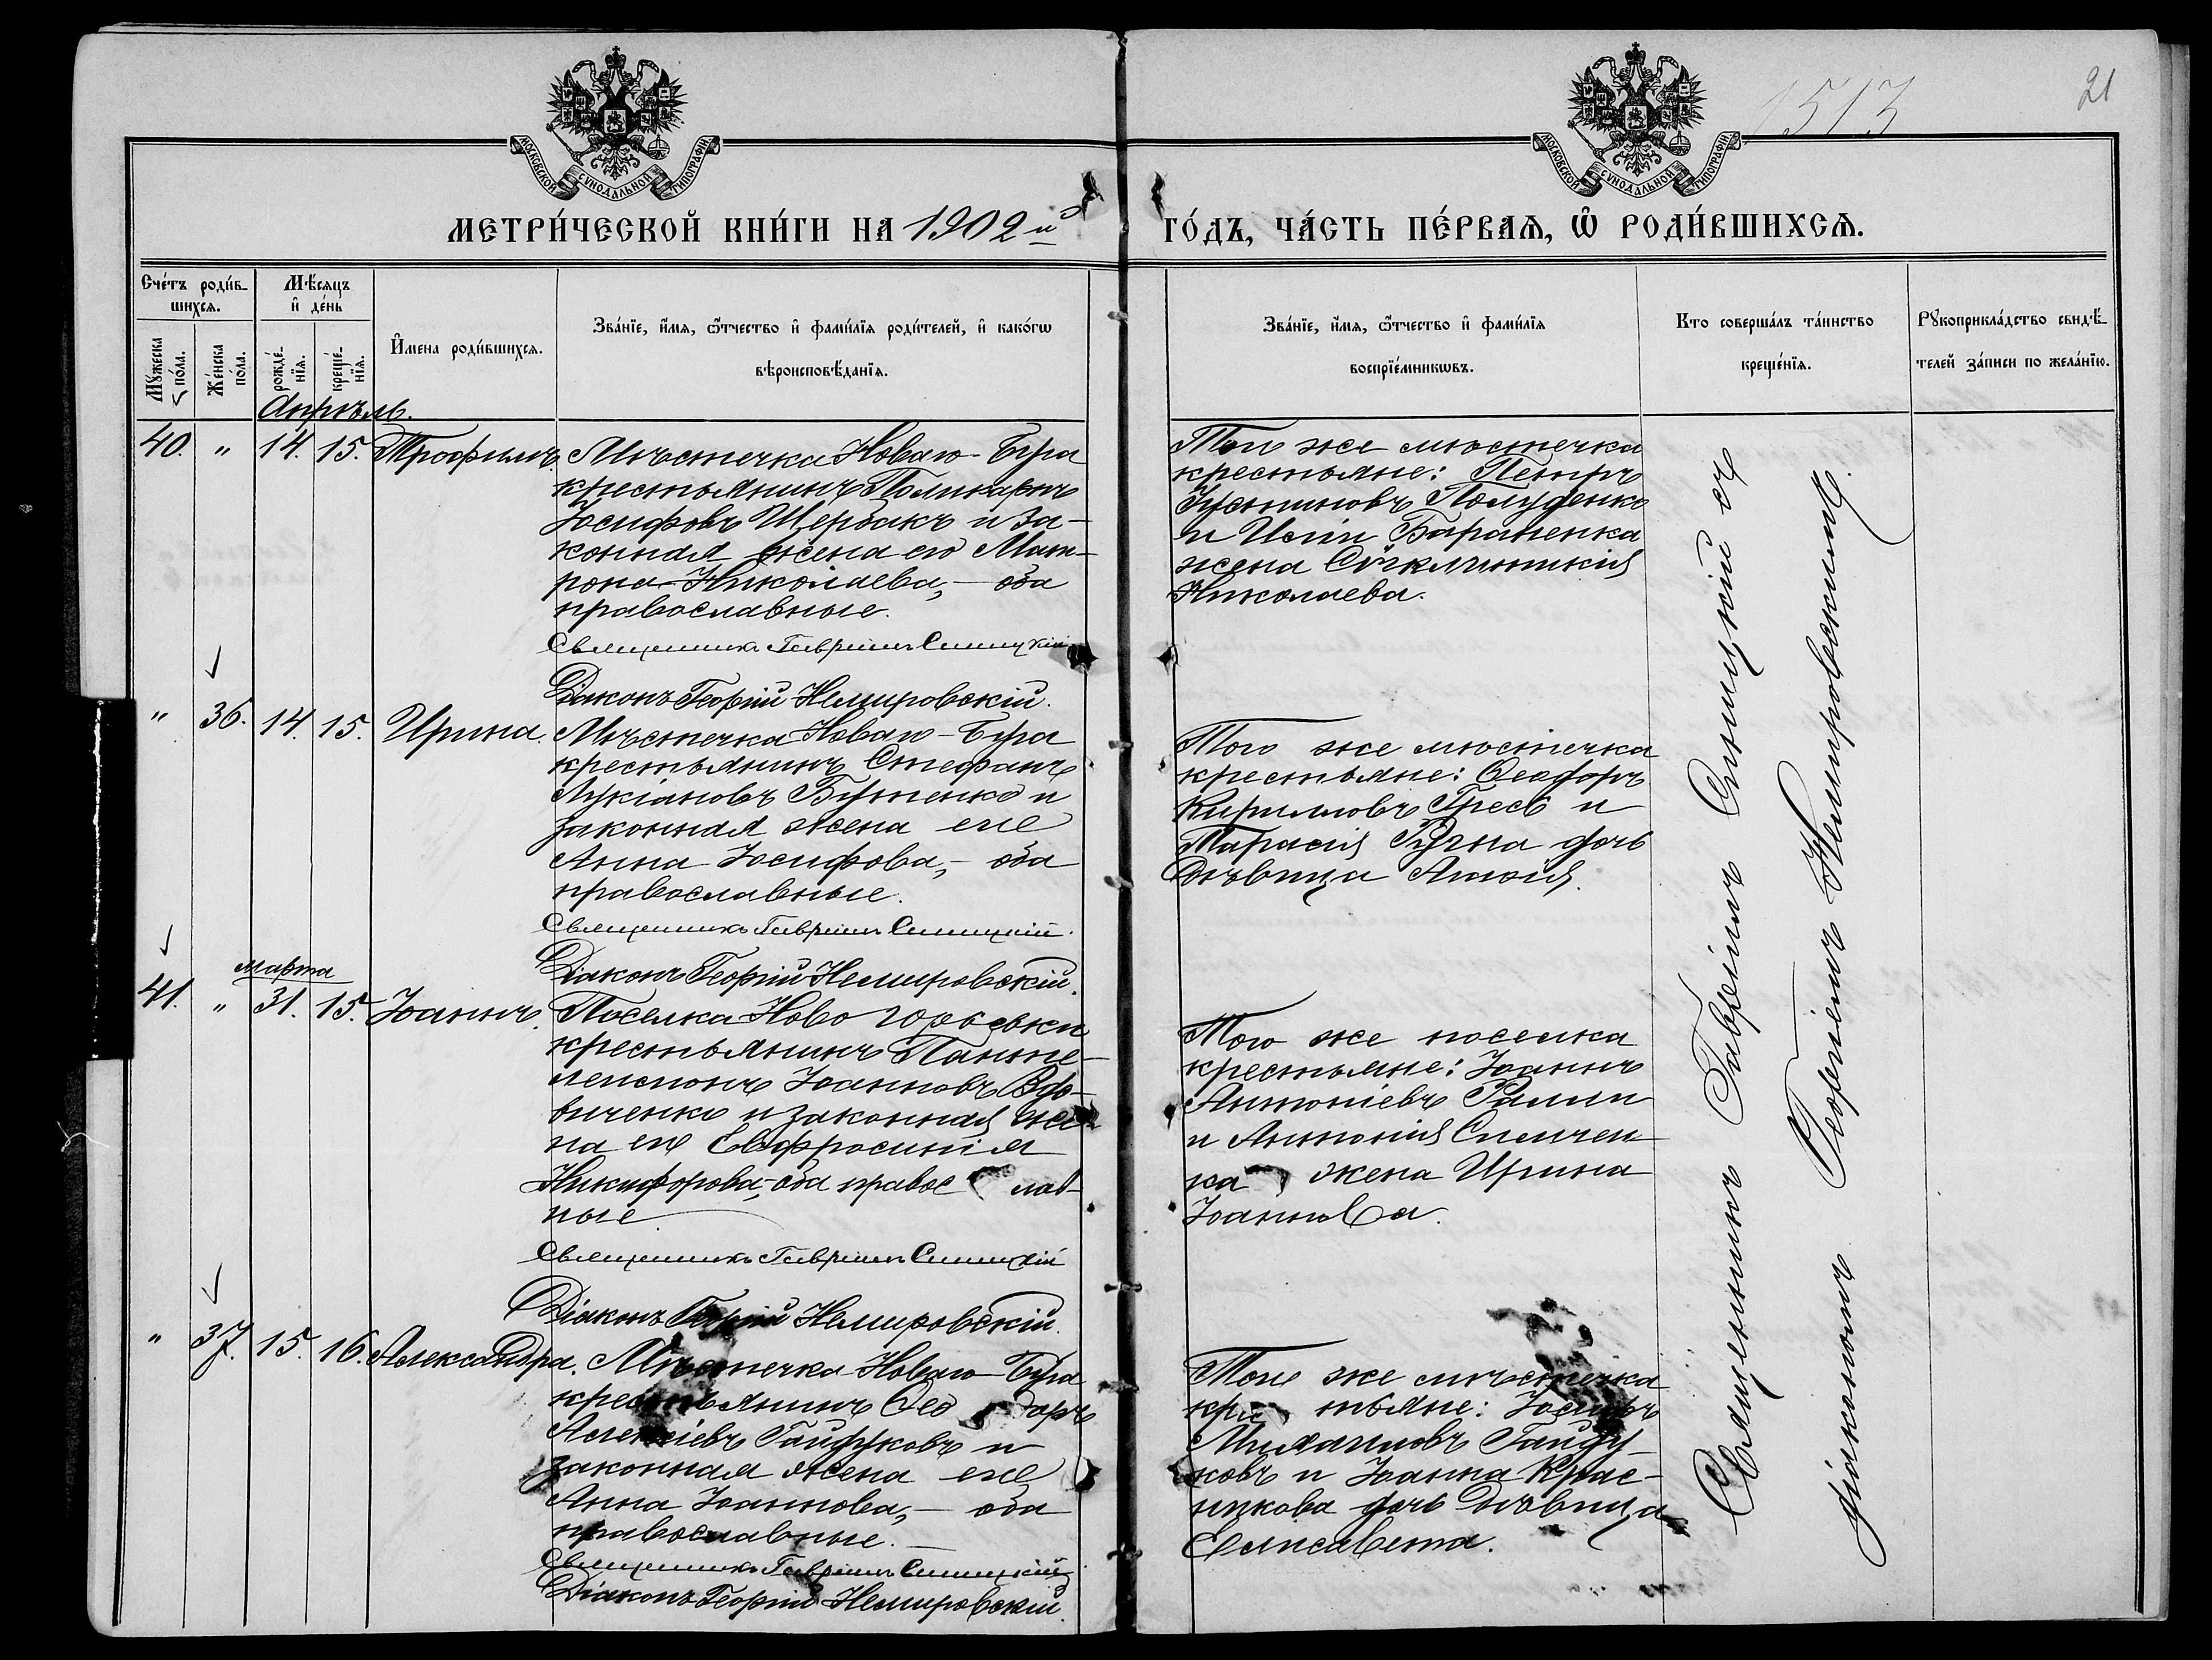 1513
21
МОСКОВСКОЙ СѴНОДАЛЬНОЙ ТИПОГРАФІИ
МОСКОВСКОЙ СѴНОДАЛЬНОЙ ТИПОГРАФІИ
МЕТРИ́ЧЕСКОЙ КНИ́ГИ НА 1902й ГО́ДЪ, ЧА́СТЬ ПЕ́РВАѦ, Ѡ҆ РОДИ́ВШИХСѦ.
Сче́тъ роди́в-
шихсѧ.
Мꙋ́жеска по́ла.
Же́нска по́ла.
Мѣ́сѧцъ
и҆ де́нь
рожде́-
нїѧ.
креще́-
нїѧ.
И҆мена роди́вшихсѧ.
Зва́нїе, и҆́мѧ, ѻ҆́тчество и҆ фами́лїѧ роди́телей, и҆ како́гѡ
вѣроисповѣ́данїѧ.
Зва́нїе, и҆́мѧ, ѻ҆́тчество и҆ фами́лїѧ
воспрїе́мникѡвъ.
Кто соверша́лъ та́инство
креще́нїѧ.
Рꙋкоприкла́дство свидѣ́-
телей за́писи по жела́нїю.
Апрѣль.
40. " 14. 15. Трофимъ
Мѣстечка Новаго-Буга
крестьянинъ Поликарпъ
Іосифовъ Щербакъ и за-
конная жена его Мат-
рона Николаева,- оба
православные.
Священникъ Гавріилъ Синицкій
Діаконъ Георгій Немировскій.
Того же мѣстечка
крестьяне: Петръ
Полуденко
и Бараненка
жена
Николаева.
" 36. 14. 15. Ирина.
Мѣстечка Новаго-Буга
крестьянинъ Стефанъ
Лукіановъ Бутенко и
законная жена его
Анна Іосифова,- оба
православные.
Священникъ Гавріилъ Синицкій.
Діаконъ Георгій Немировскій.
Того же мѣстечка
крестьяне: Ѳеодоръ
Кирилловъ Гресь и
Тарасія дочь
дѣвица
марта
41. " 31. 15. Іоаннъ.
Поселка Ново Юрьевки
крестьянинъ Панте-
леимонъ Іоанновъ Вдо-
виченко и законная же-
на его Евфросинія
Никифорова,- оба правос лав-
ные
Священникъ Гавріилъ Синицкій
Діаконъ Георгій Немировскій.
Того же поселка
крестьяне: Іоаннъ
Антоніевъ
и Антонія Силичен-
ка жена Ирина
Іоаннова.
" 37. 15. 16. Александра.
Мѣстечка Новаго-Буга
крестьянинъ Ѳео доръ
Алексіевъ Гайдуковъ и
законная жена его
Анна Іоаннова,- оба
православные.-
Священникъ Гавріилъ Синицкій
Діаконъ Георгій Немировскій.
Того же мѣстечка
кре тьяне: Іосифъ
Михаиловъ Гайду-
ковъ и Іоанна Крас-
никова дочь дѣвица
Елисавета.
Священникъ Гавріилъ Синицкій съ
діакономъ Георгіемъ Немировскимъ.